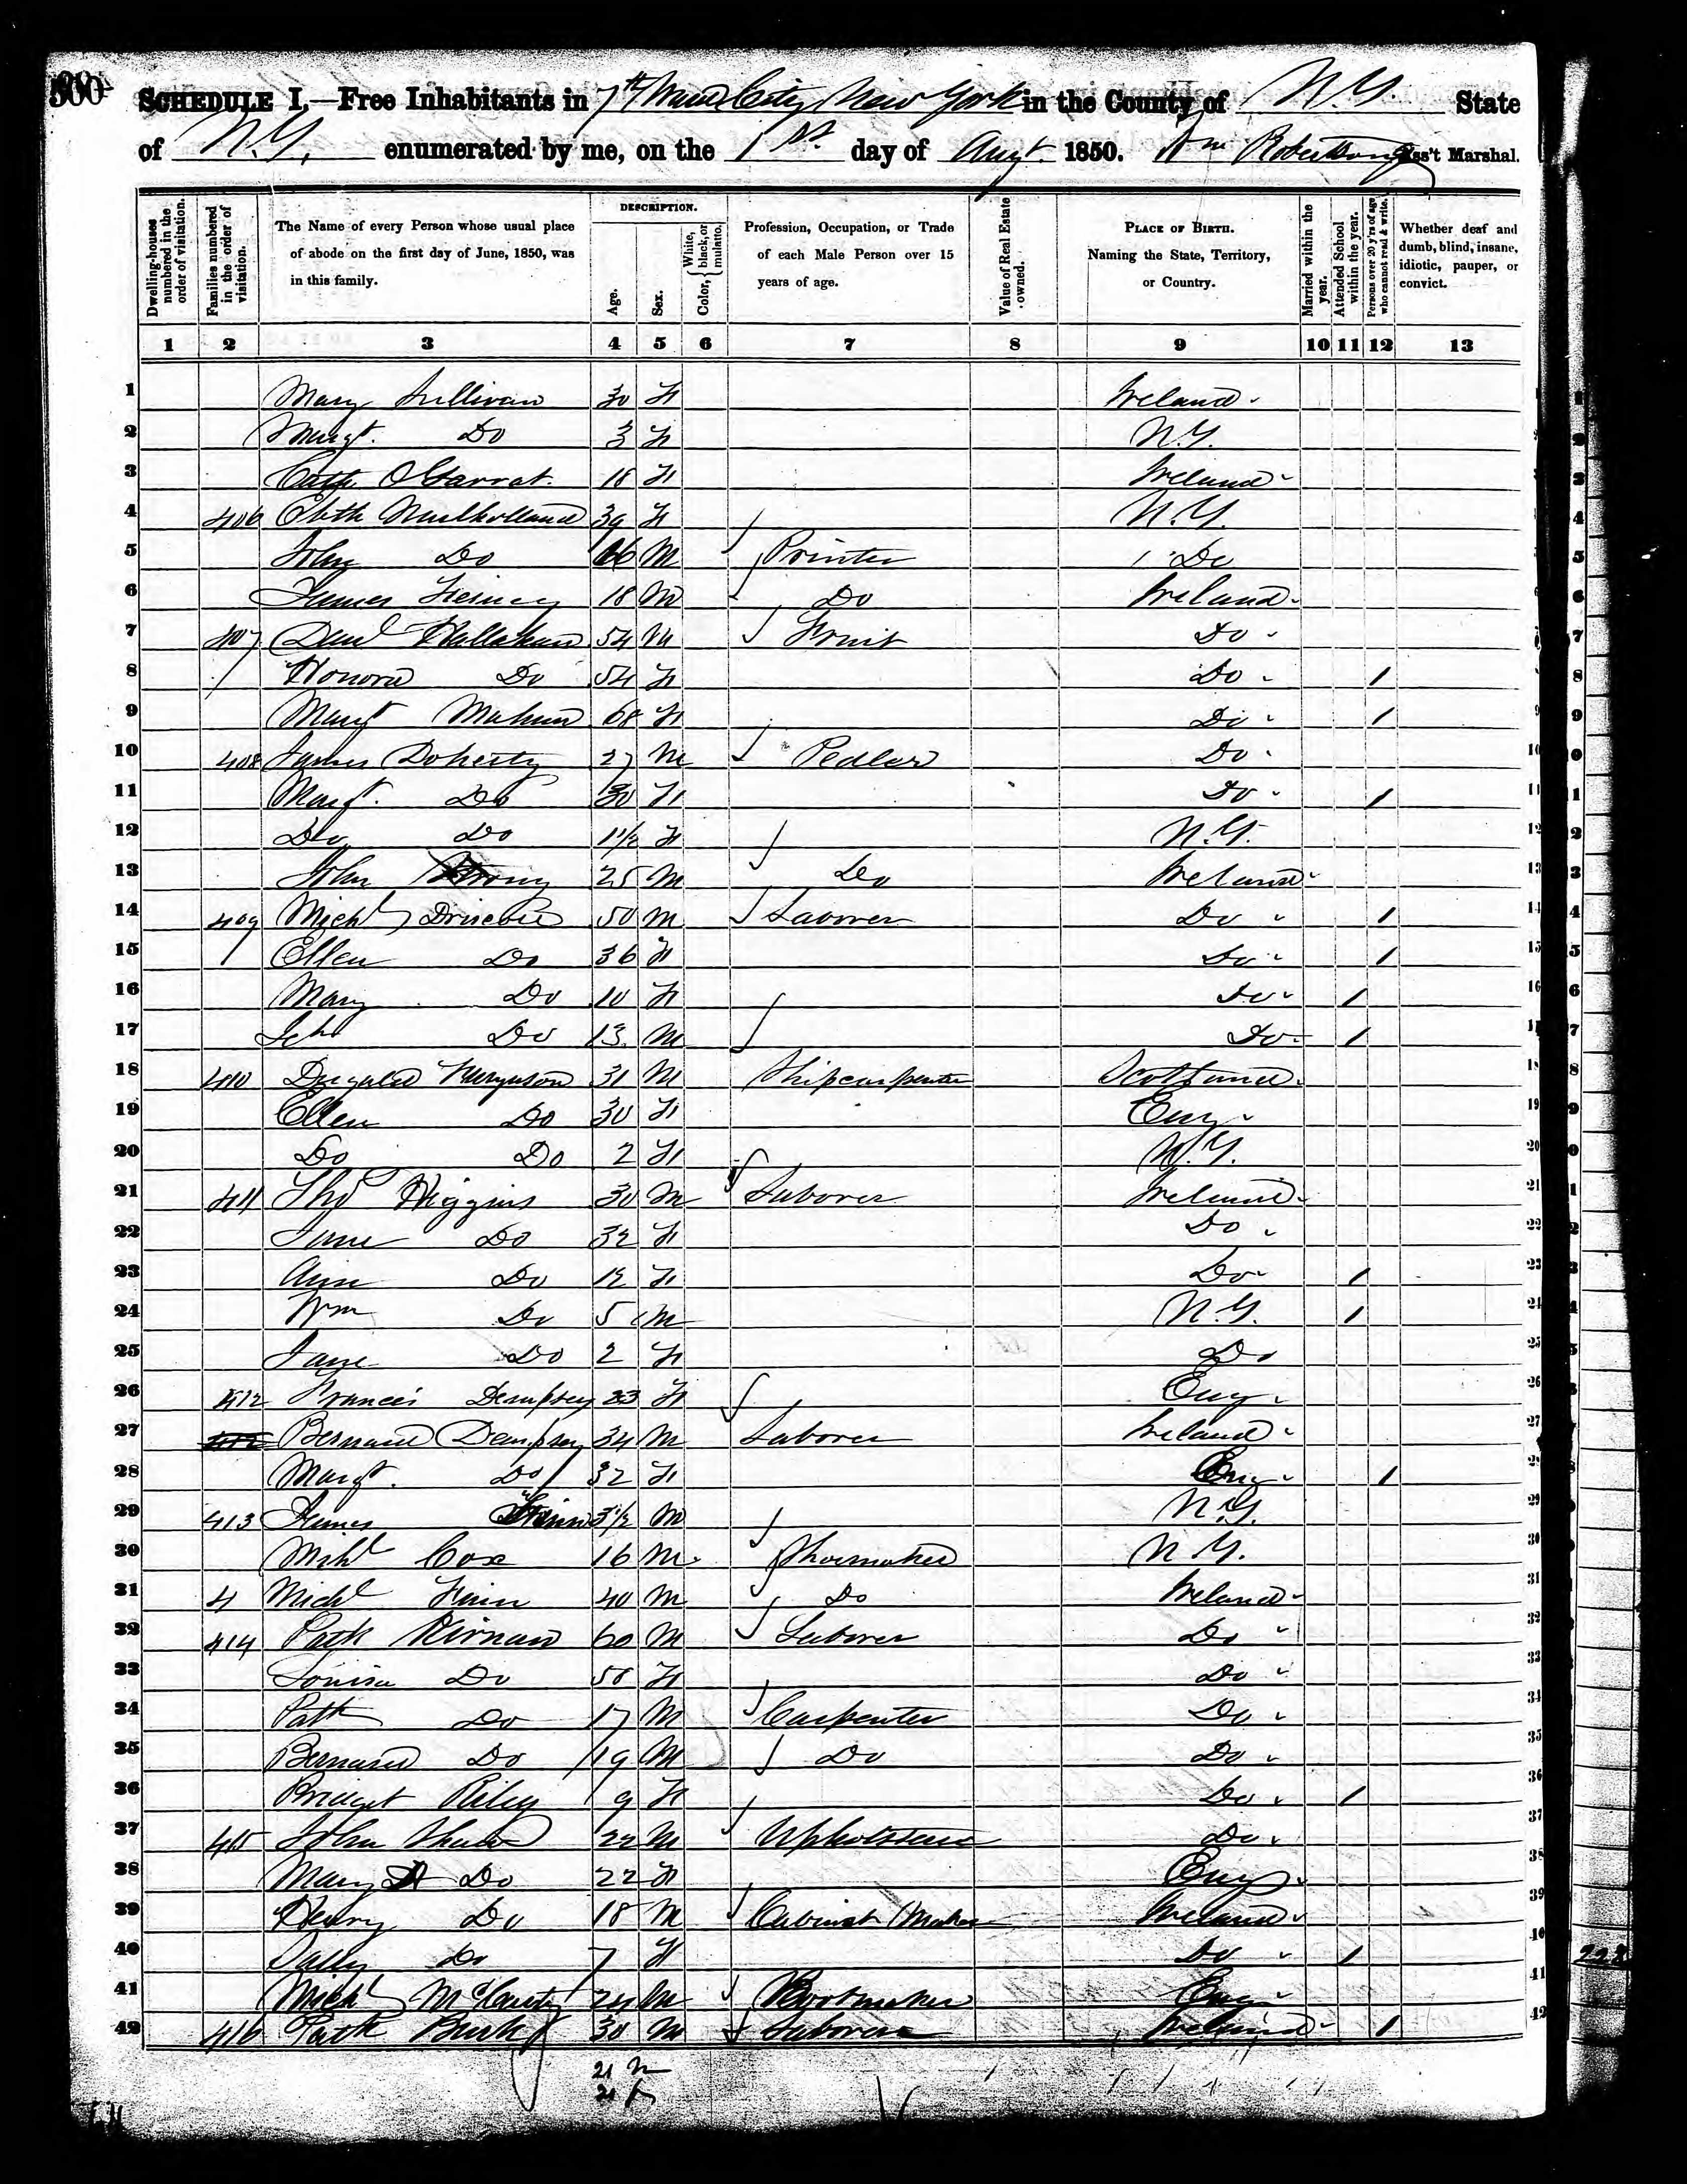 500
SCHEDULE I.—Free Inhabitants in 7th Ward City New York in the County of N.Y. State
of N.Y. enumerated by me, on the 1st. day of Augt. 1850. Wm Robertson Ass't Marshal.
DESCRIPTION.
Dwelling-houses numbered in the order of visitation.
Families numbered in the order of visitation.
The Name of every Person whose usual place of abode on the first day of June, 1850, was in this family.
Age.
Sex.
Color, { White, black, or mulatto.
Profession, Occupation, or Trade of each Male Person over 15 years of age.
Value of Real Estate owned.
PLACE OF BIRTH. Naming the State, Territory, or Country.
Married within the year.
Attended School within the year.
Persons over 20 y'rs of age who cannot read & write.
Whether deaf and dumb, blind, insane, idiotic, pauper, or convict.
1 2 3 4 5 6 7 8 9 10 11 12 13
1 Mary Sullivan 30 F Ireland
2 Margt. Do 3 F N.Y.
3 Cath 18 F Ireland
4 406 Mulholland 39 F N.Y.
5 John Do 16 M Printer Do
6 James 18 M Do Ireland
7 407 Danl 54 M Fruit Do
8 Honora Do 54 F Do 1
9 Margt Mahan 68 F Do 1
10 408 James Doherty 27 M Pedlar Do
11 Margt. Do 30 F Do 1
12 Do Do 1 1/2 F N.Y.
13 John 25 M Do Ireland
14 409 Michl Driscoll 50 M Laborer Do 1
15 Ellen Do 36 F Do 1
16 Mary Do 10 F Do 1
17 Do 13 M Do 1
18 410 Dugald Furguson 31 M Shipcarpenter Scotland
19 Ellen Do 30 F Eng
20 Do Do 2 F N.Y.
21 411 Thos Higgins 30 M Laborer Ireland
22 Jane Do 32 F Do
23 Ann Do 12 F Do 1
24 Wm Do 5 M N.Y. 1
25 Jane Do 2 F Do
26 412 Frances Dempsey 23 F Eng
27 412 Bernard Dempsey 34 M Laborer Ireland
28 Margt. Do 32 F Eng 1
29 413 James 3 1/2 M N.Y.
30 Michl Cox 16 M Shoemaker N.Y.
31 4 Michl Finn 40 M Do Ireland
32 414 Patk Kirnan 60 M Laborer Do
33 Louisa Do 58 F Do
34 Patk Do 17 M Carpenter Do
35 Bernard Do 19 M Do Do
36 Bridget Riley 9 F Do 1
37 415 John 22 M Upholsterer Do
38 Mary Do 22 F Eng
39 Henry Do 18 M Cabinet Maker Ireland
40 Sally Do 7 F Do 1
41 Michl McCarty 24 M Bootmaker Eng
42 416 Patk Burk 30 M Laborer Ireland 1
21 M
21 F